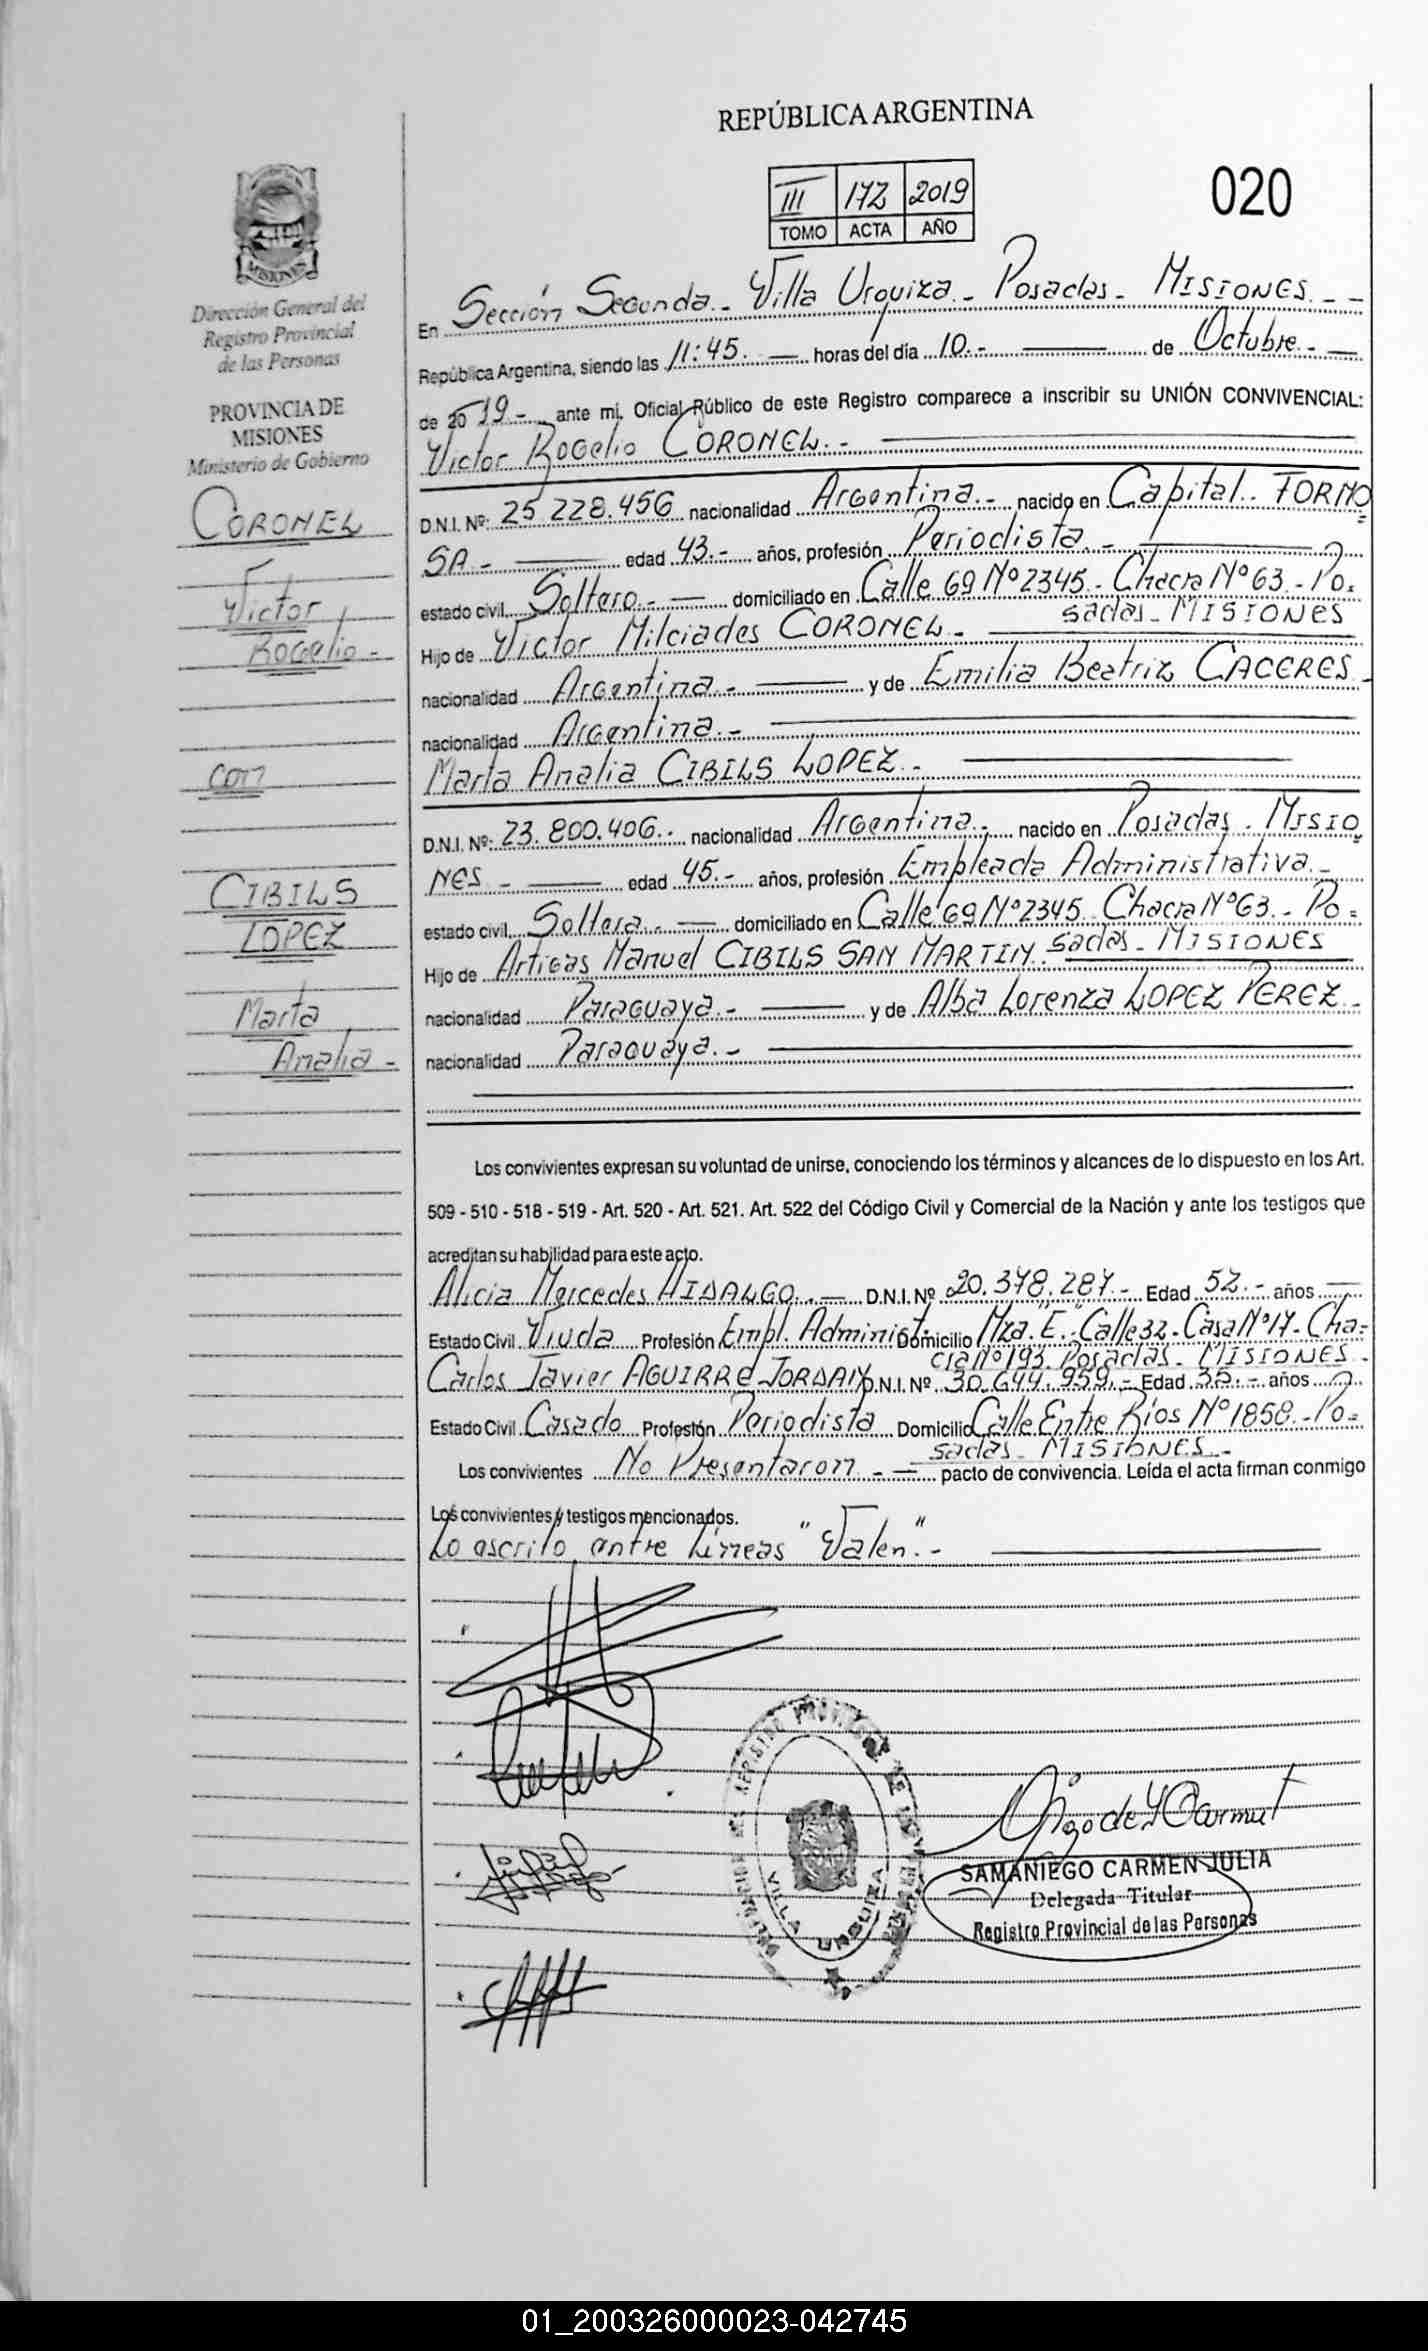 REPÚBLICA ARGENTINA
III 172 2019
TOMO ACTA AÑO
020
MISIONES
Dirección General del
Registro Provincial
de las Personas
PROVINCIA DE
MISIONES
Ministerio de Gobierno
CORONEL
Victor
Rogelio -
con
CIBILS
LOPEZ
Marta
Analia -
En Sección Segunda - Villa Urquiza - Posadas - MISIONES - -
República Argentina, siendo las 11:45. — horas del día 10.- — de Octubre.- —
de 2019.- ante mi, Oficial Público de este Registro comparece a inscribir su UNIÓN CONVIVENCIAL:
Victor Rogelio CORONEL.-
D.N.I. Nº: 25.228.456 nacionalidad Argentina.- nacido en Capital. FORMO=
SA.- — edad 43.- años, profesión Periodista.-
estado civil Soltero.- — domiciliado en Calle 69 Nº 2345.- Chacra Nº 63.- Po=
sadas - MISIONES
Hijo de Victor Milciades CORONEL.-
nacionalidad Argentina.- — y de Emilia Beatriz CACERES.-
nacionalidad Argentina.-
Marta Analia CIBILS LOPEZ.-
D.N.I. Nº: 23.800.406.- nacionalidad Argentina.- nacido en Posadas. MISIO=
NES - — edad 45.- años, profesión Empleada Administrativa.-
estado civil Soltera.- — domiciliado en Calle 69 Nº 2345. Chacra Nº 63.- Po=
sadas - MISIONES
Hijo de Artigas Manuel CIBILS SAN MARTIN.
nacionalidad Paraguaya.- — y de Alba Lorenza LOPEZ PEREZ.-
nacionalidad Paraguaya.-
Los convivientes expresan su voluntad de unirse, conociendo los términos y alcances de lo dispuesto en los Art.
509 - 510 - 518 - 519 - Art. 520 - Art. 521. Art. 522 del Código Civil y Comercial de la Nación y ante los testigos que
acreditan su habilidad para este acto.
Alicia Mercedes HIDALGO.- — D.N.I. Nº 20.378.287.- Edad 52.- años —
Estado Civil Viuda Profesión Empl. Administ. Domicilio Mza. "E".- Calle 32 - Casa Nº 17 - Cha=
cra Nº 193. Posadas - MISIONES.-
Carlos Javier AGUIRRE JORDAN D.N.I. Nº 30.644.959.- Edad 35.- años
Estado Civil Casado Profesión Periodista Domicilio Calle Entre Ríos Nº 1858.- Po=
sadas - MISIONES.-
Los convivientes No Presentaron - — pacto de convivencia. Leída el acta firman conmigo
Los convivientes y testigos mencionados.
Lo escrito entre Lineas "Valen".-
VILLA URQUIZA
SAMANIEGO CARMEN JULIA
Delegada Titular
Registro Provincial de las Personas
01_200326000023-042745